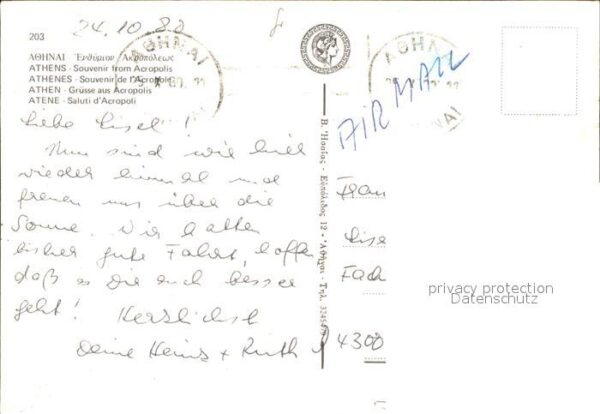 24.10.80
203
ΑΘΗΝΑΙ Ἐνθύμιον Ἀκροπόλεως
ATHENS - Souvenir from Acropolis
ATHENES - Souvenir de l'Acropole
ATHEN - Grüsse aus Acropolis
ATENE - Saluti d'Acropoli
ΑΘΗΝΑΙ
AIR MAIL
Liebe Lisel!
Nun sind wir hier
wieder einmal und
freuen uns über die
Sonne. Wir hatten
bisher gute Fahrt, hoffen
daß es Dir auch besser
geht! Herzlichst
Deine Heinz + Ruth
Frau
Lise
Fach
4300
privacy protection
Datenschutz